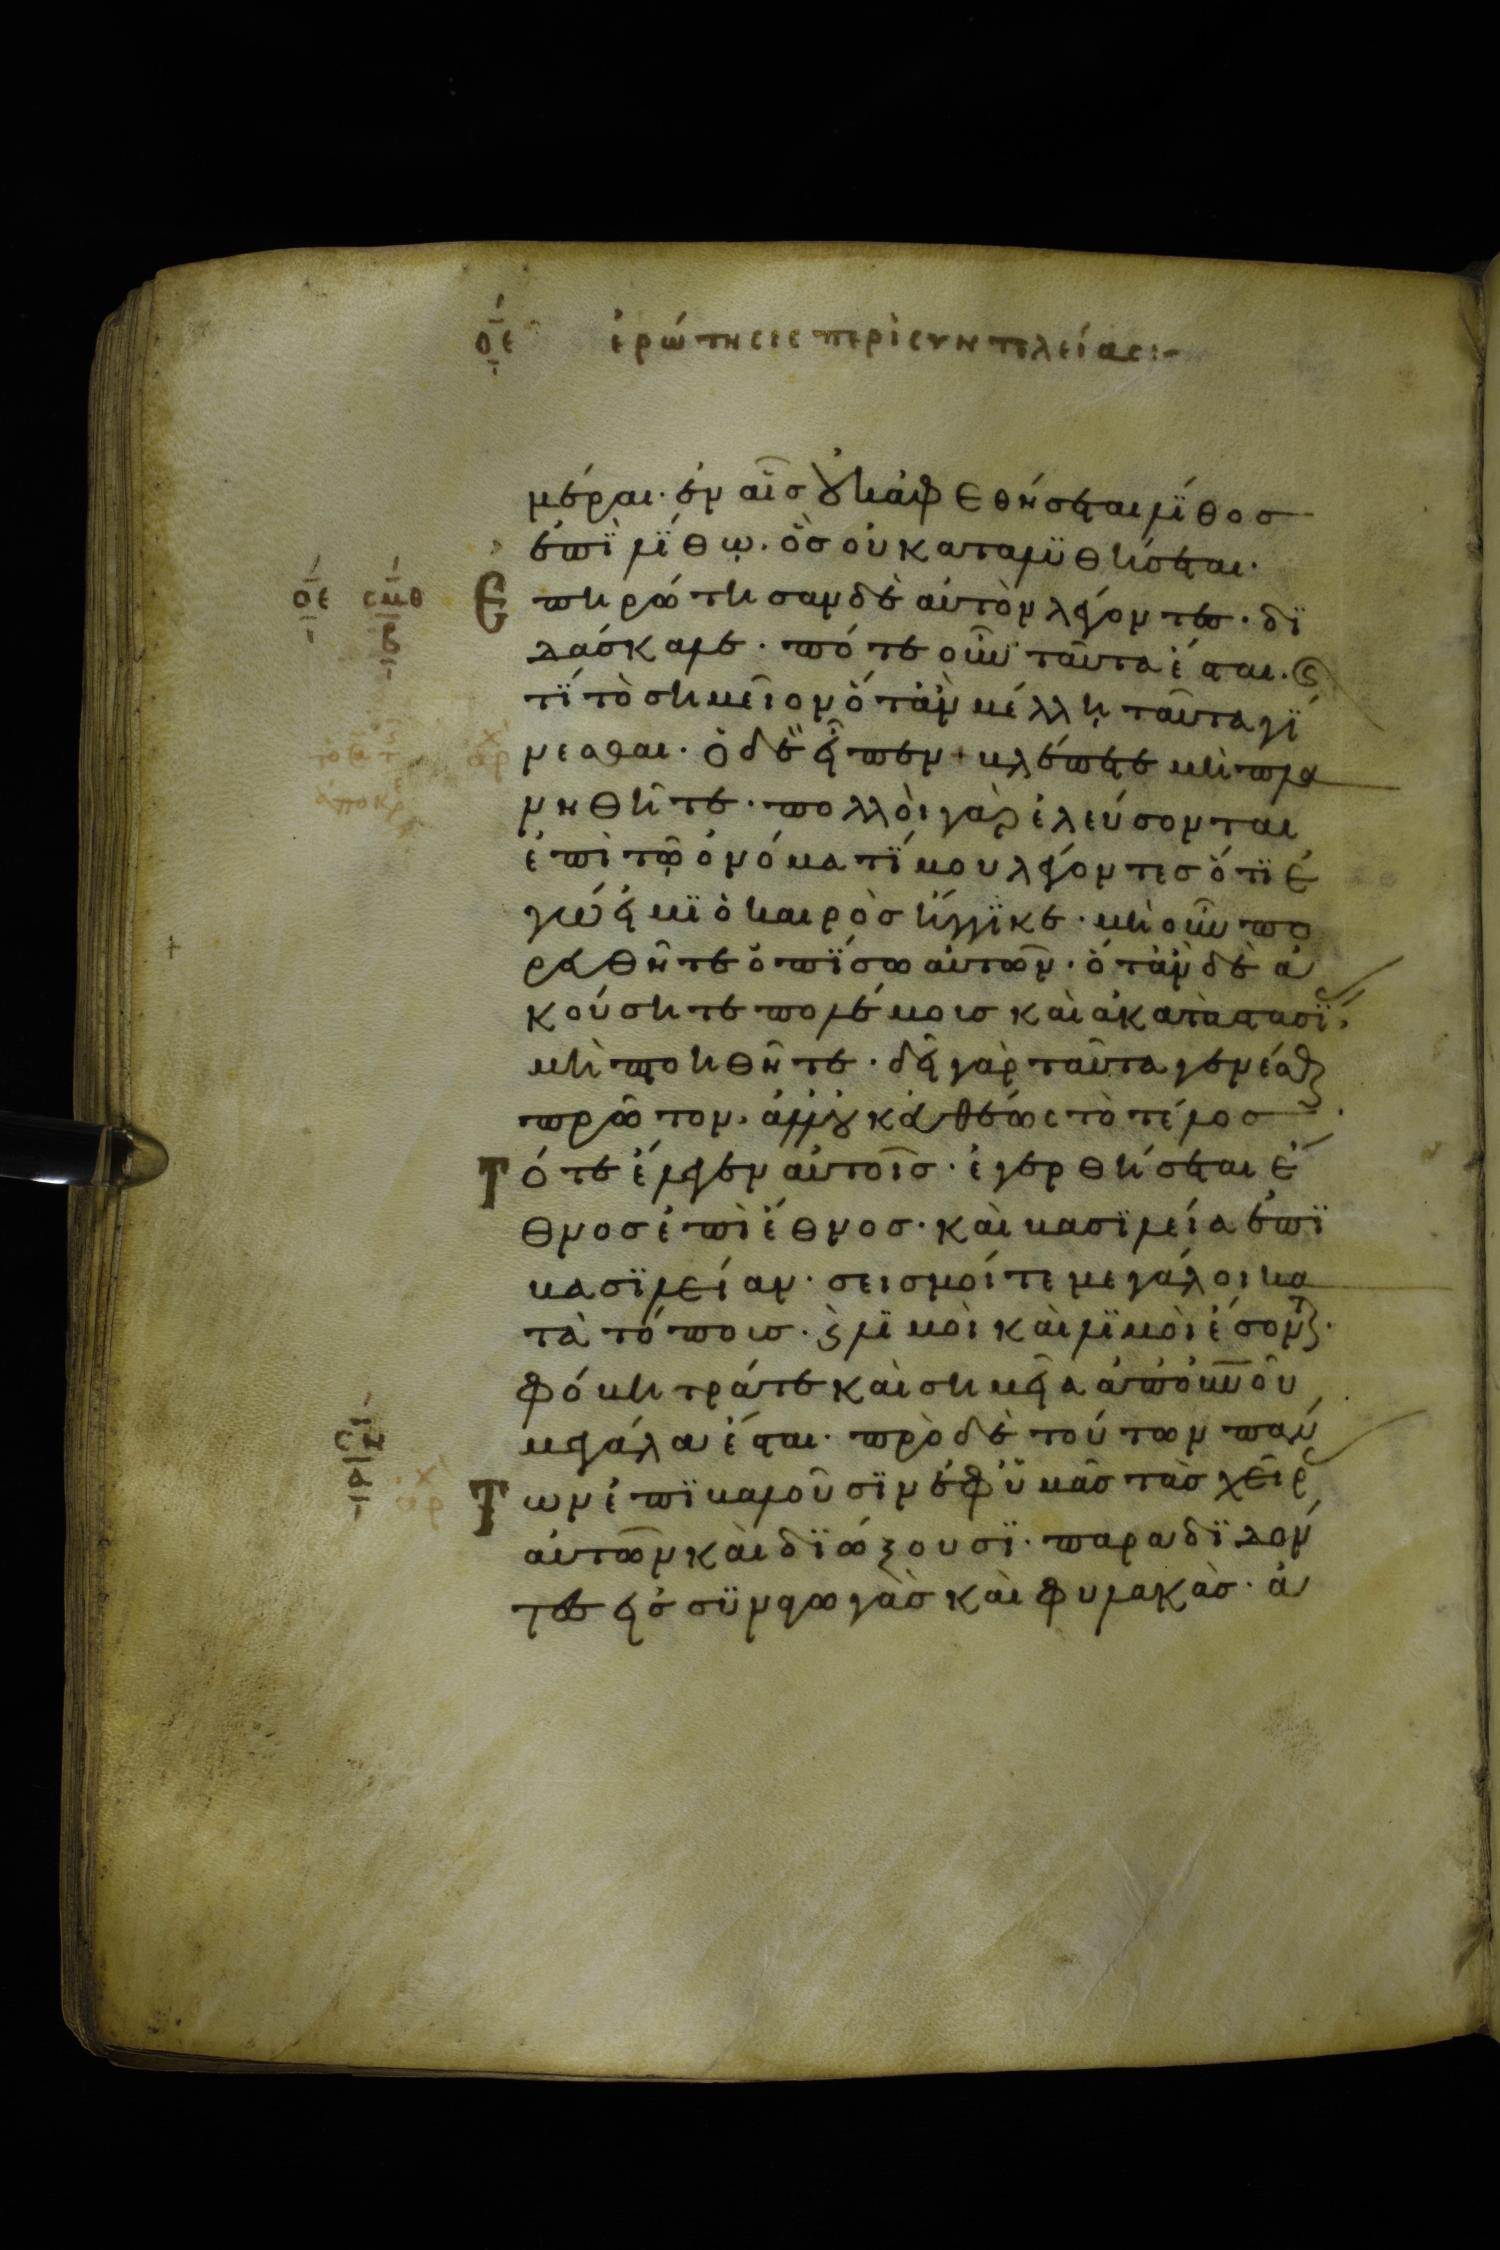 οε ἐρώτησις περὶ συντελείας:-
μέραι· ἐν αἷς οὐκ ἀφεθήσεται λίθος
ἐπὶ λίθω· ὃς οὐ καταλυθήσεται·
οε σμθ β Ἐπηρώτησαν δὲ αὐτὸν λέγοντες· δι
δάσκαλε· πότε οὖν ταῦτα ἔσται· κ
τί τὸ σημεῖον ὅταν μέλλη ταῦτα γί
νεσθαι· ὁ δὲ εἶπεν + βλέπετε μὴ πλα
νηθῆτε· πολλοὶ γὰρ ἐλεύσονται
ἐπὶ τῶ ὀνόματί μου λέγοντες ὅτι ἐ
γώ εἰμι ὁ καιρὸς ἤγγικε· μὴ οὖν πο
ρευθῆτε ὀπίσω αὐτῶν· ὅταν δὲ ἀ
κούσητε πολέμοις καὶ ἀκαταστασί·
μὴ πτοηθῆτε· δεῖ γὰρ ταῦτα γενέσθαι
πρῶτον· ἀλλ οὐκ εὐθέως τὸ τέλος
Τότε ἔλεγεν αὐτοῖς· ἐγερθήσεται ἔ
θνος ἐπὶ ἔθνος· καὶ βασιλεία ἐπὶ
βασιλείαν· σεισμοί τε μεγάλοι κα
τὰ τόπους· κ λιμοὶ καὶ λιμοὶ ἔσονται·
φόβητρά τε καὶ σημεῖα ἀπ οὐνοῦ
μεγάλα ἔσται· πρὸ δὲ τούτων πάν
Των ἐπιβαλοῦσιν ἐφ ὑμᾶς τὰς χεῖρ
αὐτῶν καὶ διώξουσι· παραδιδόν
τες εἰς συναγωγὰς καὶ φυλακὰς· ἀ